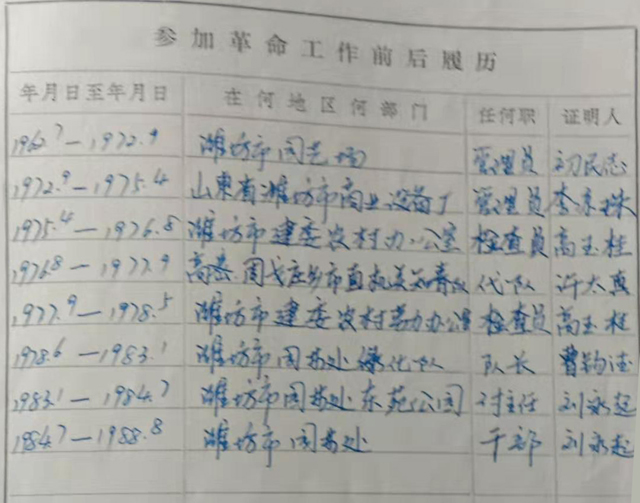 参加革命工作前后履历
年月日至年月日 在何地区何部门 任何职 证明人
1962.7—1972.9 潍坊市园艺场 管理员 初民志
1972.9—1975.4 山东省潍坊市商业设备厂 管理员 李京珠
1975.4—1976.8 潍坊市建委农村办公室 检查员 高玉柱
1976.8—1977.9 高密周戈庄乡市直机关知青队 代队 许太真
1977.9—1978.5 潍坊市建委农村劳力办公室 检查员 高玉柱
1978.6—1983.1 潍坊市园林处绿化队 队长 曹钧法
1983.1—1984.7 潍坊市园林处东苑公园 付主任 刘永起
1984.7—1988.8 潍坊市园林处 干部 刘永起